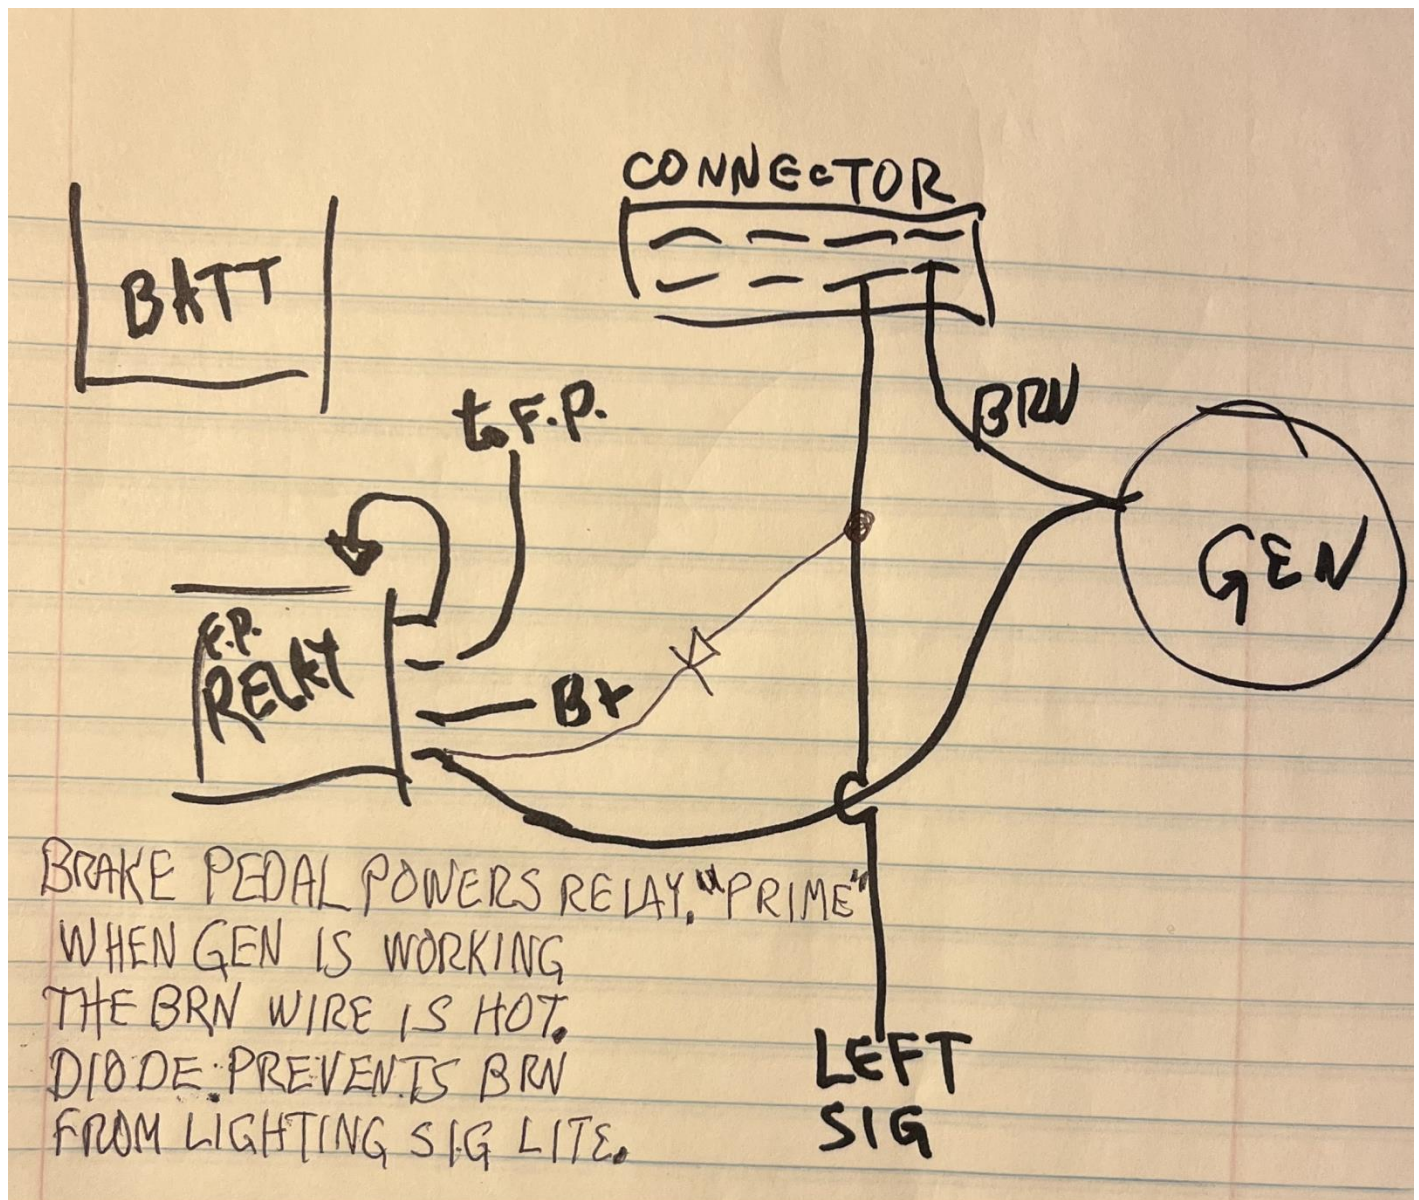 CONNECTOR
BATT
BRN
to F.P.
GEN
F.P.
RELAY
B+
BRAKE PEDAL POWERS RELAY. "PRIME"
WHEN GEN IS WORKING
THE BRN WIRE IS HOT.
DIODE PREVENTS BRN
FROM LIGHTING SIG LITE.
LEFT
SIG